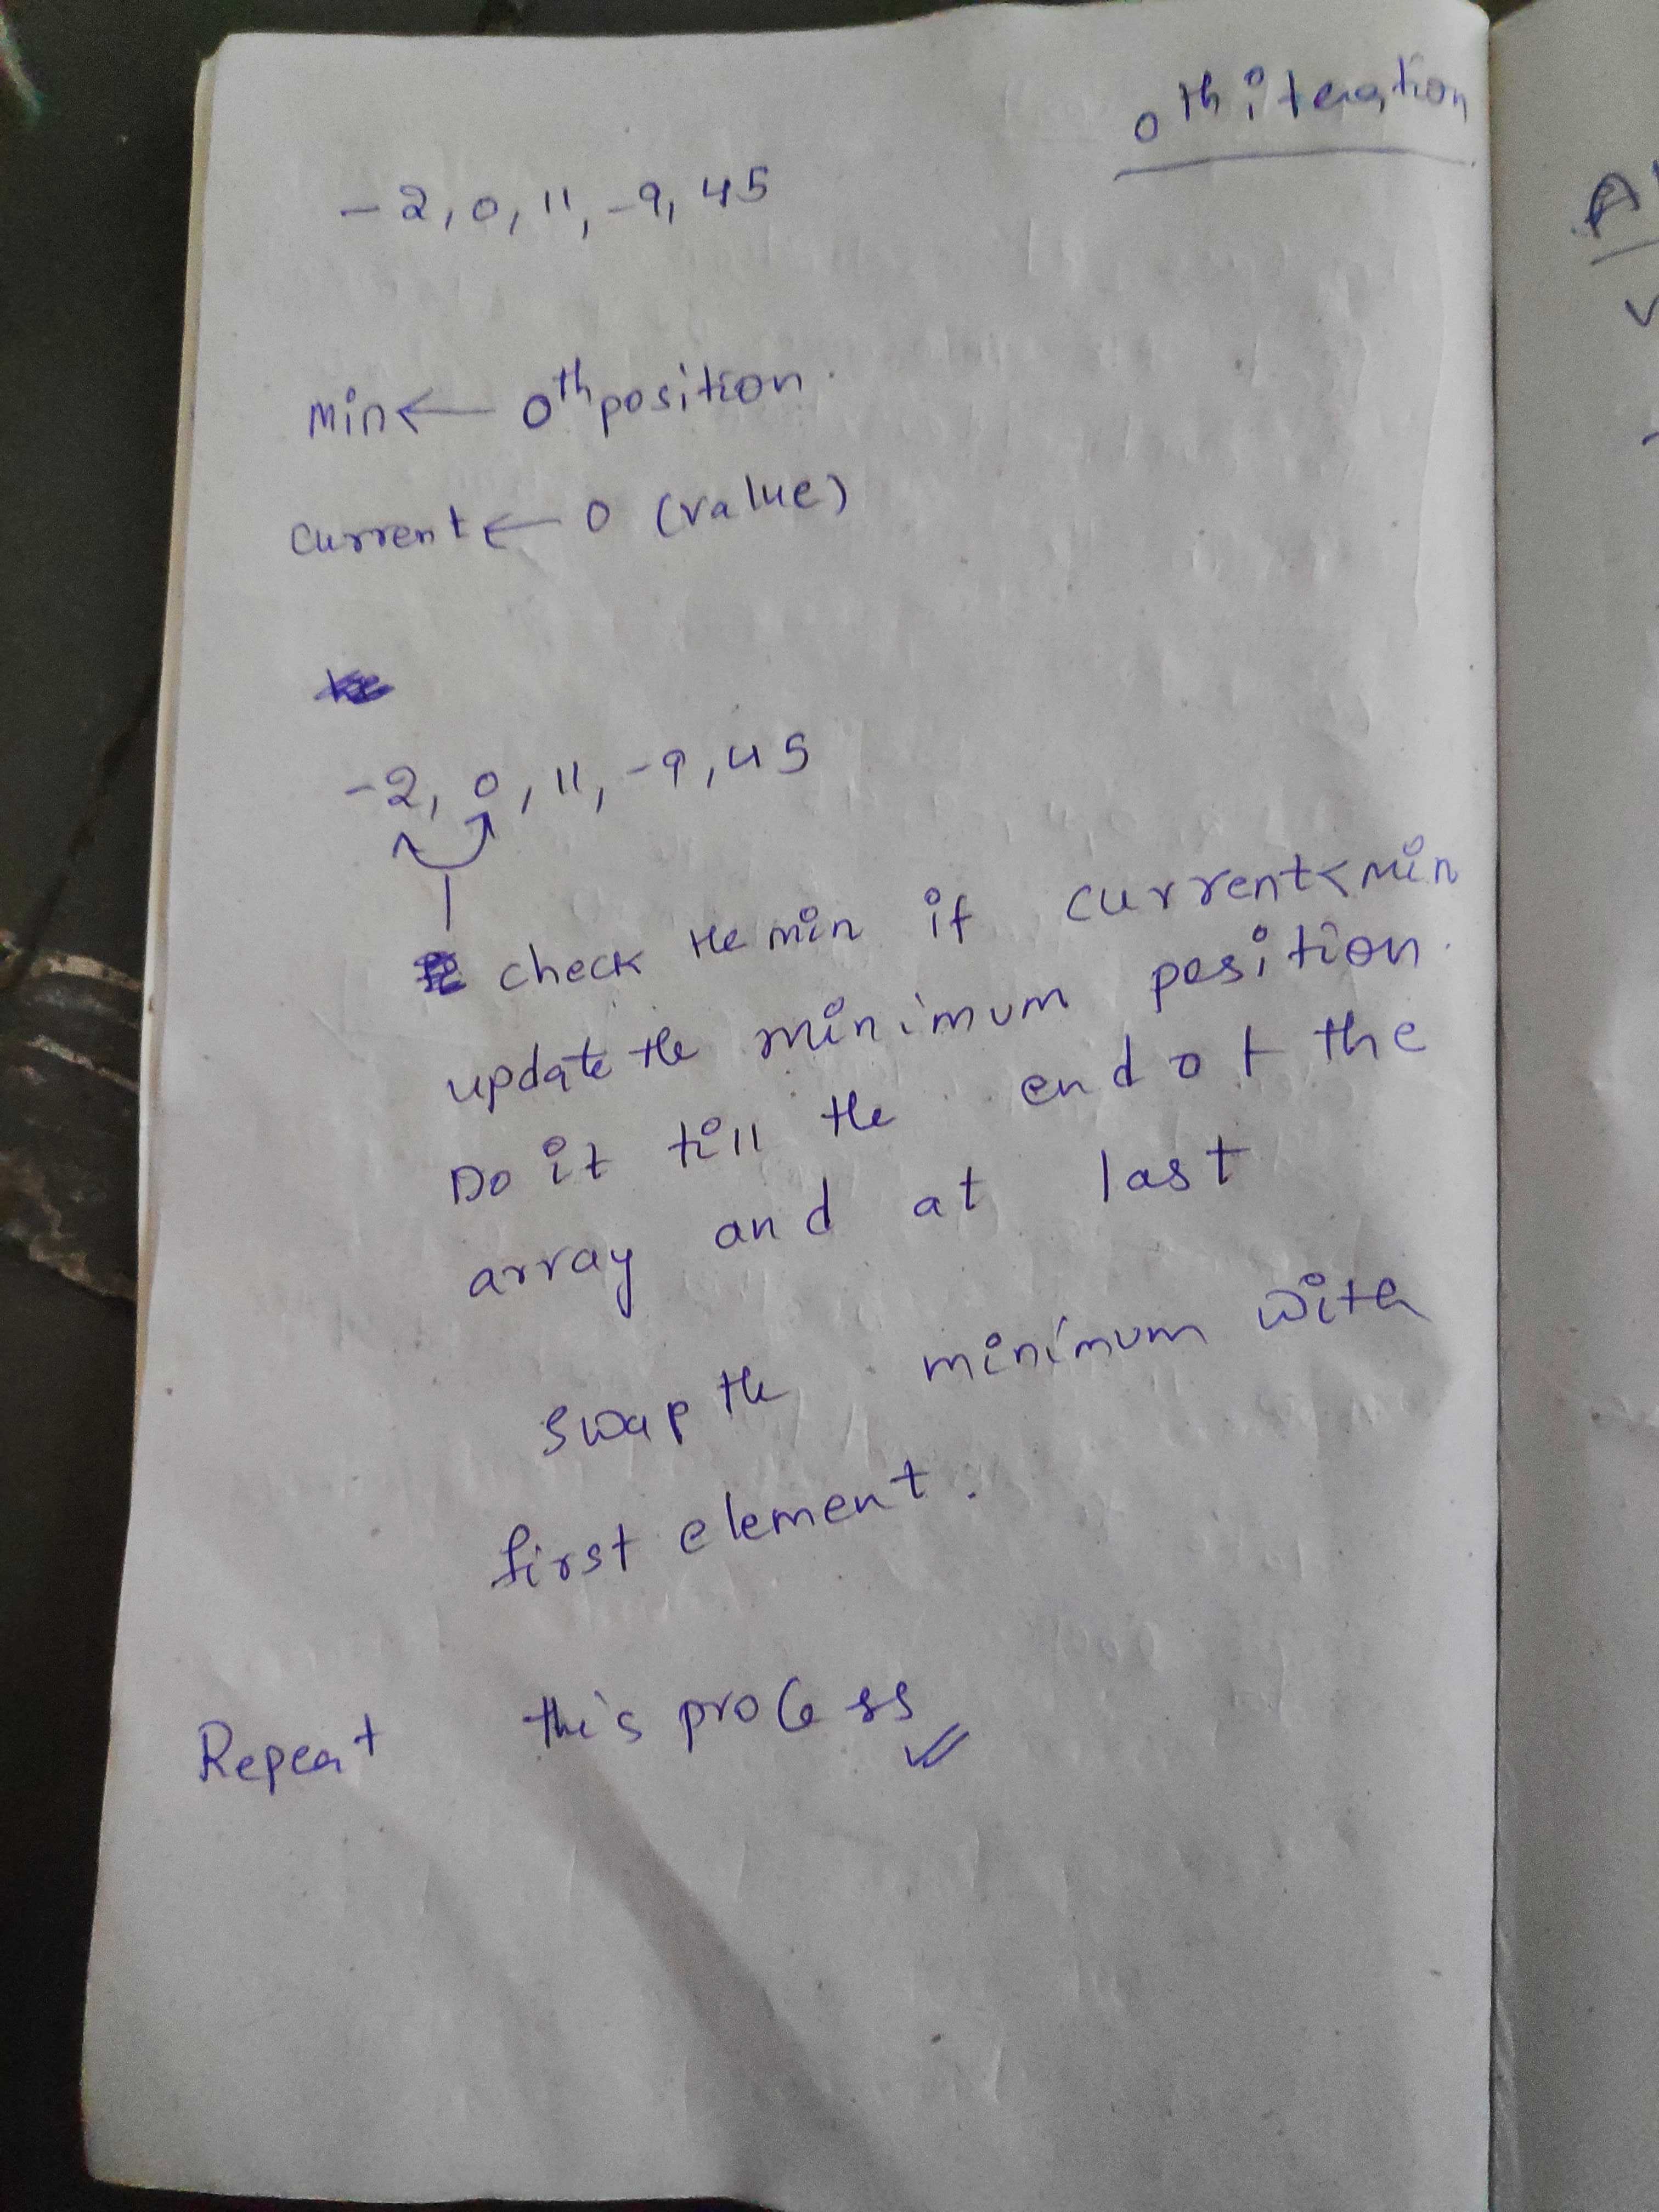 0th iteration
-2, 0, 11, -9, 45
Min ← 0th position.
current ← 0 (value)
-2, 0, 11, -9, 45
check the min if current < min
update the minimum position.
Do it till the end of the
array and at last
swap the minimum with
first element.
Repeat this process